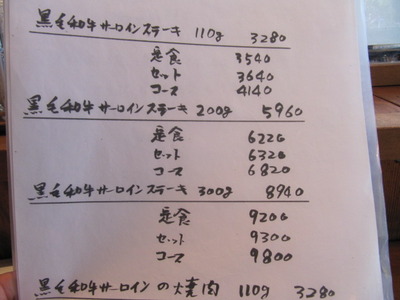 黒毛和牛サーロインステーキ 110g 3280
定食 3540
セット 3640
コース 4140
黒毛和牛サーロインステーキ 200g 5960
定食 6220
セット 6320
コース 6820
黒毛和牛サーロインステーキ 300g 8940
定食 9200
セット 9300
コース 9800
黒毛和牛サーロインの焼肉 110g 3280